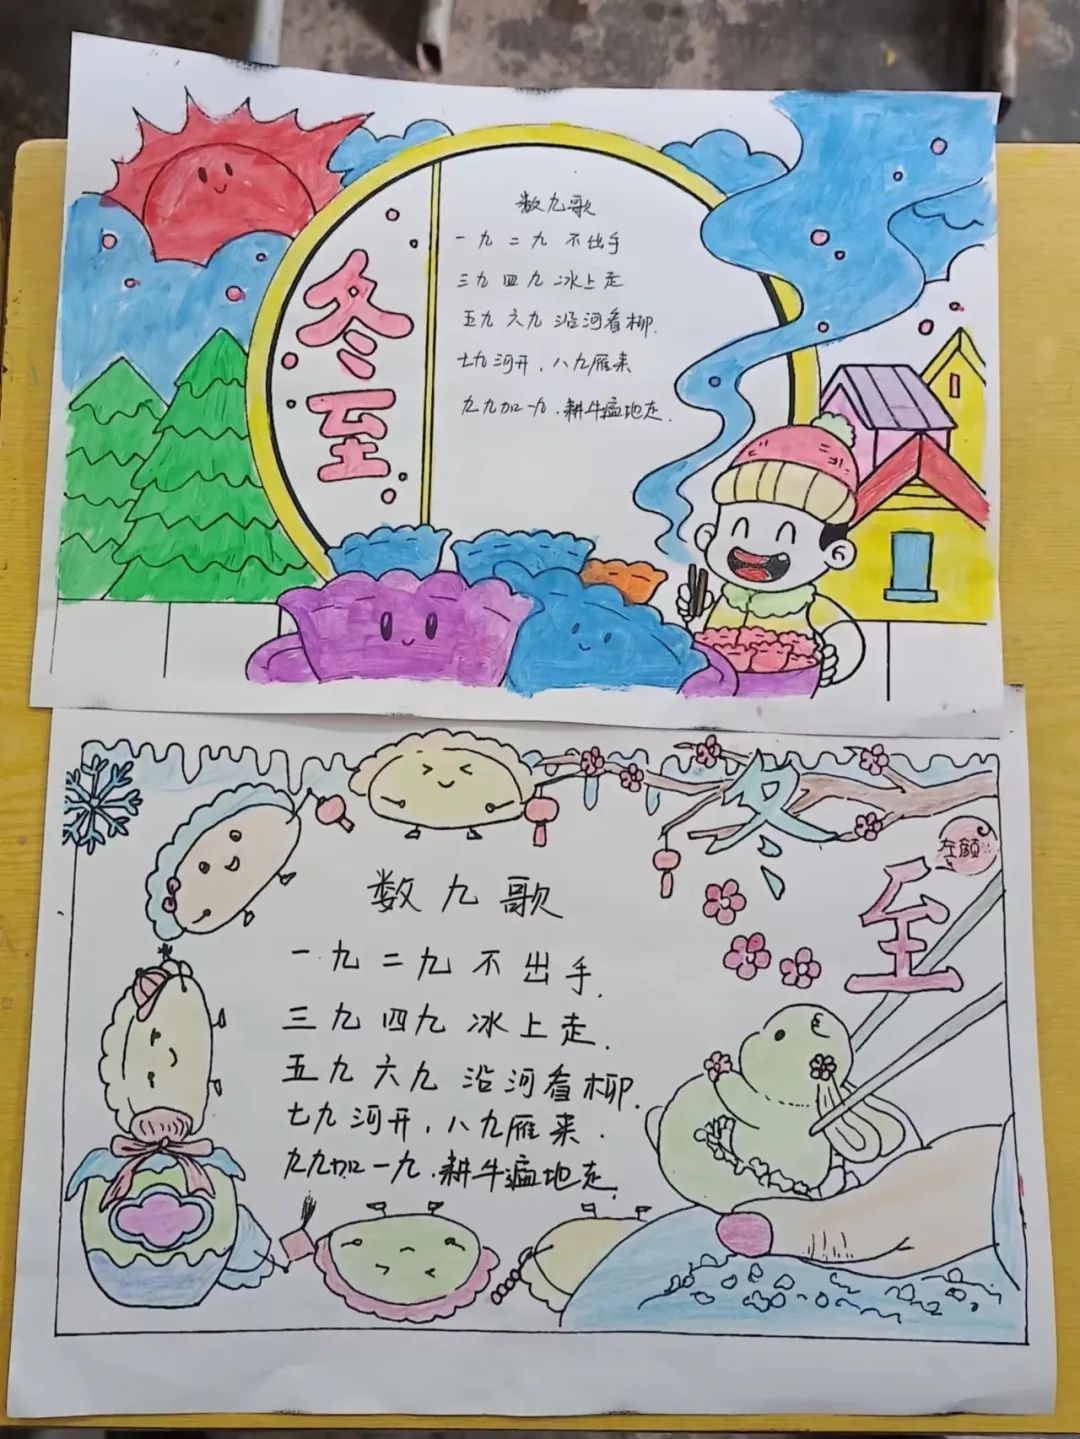 冬至
数九歌
一九二九不出手
三九四九冰上走
五九六九沿河看柳.
七九河开，八九雁来
九九加一九.耕牛遍地走.
冬至
数九歌
一九二九不出手.
三九四九冰上走.
五九六九沿河看柳.
七九河开，八九雁来.
九九加一九.耕牛遍地走.